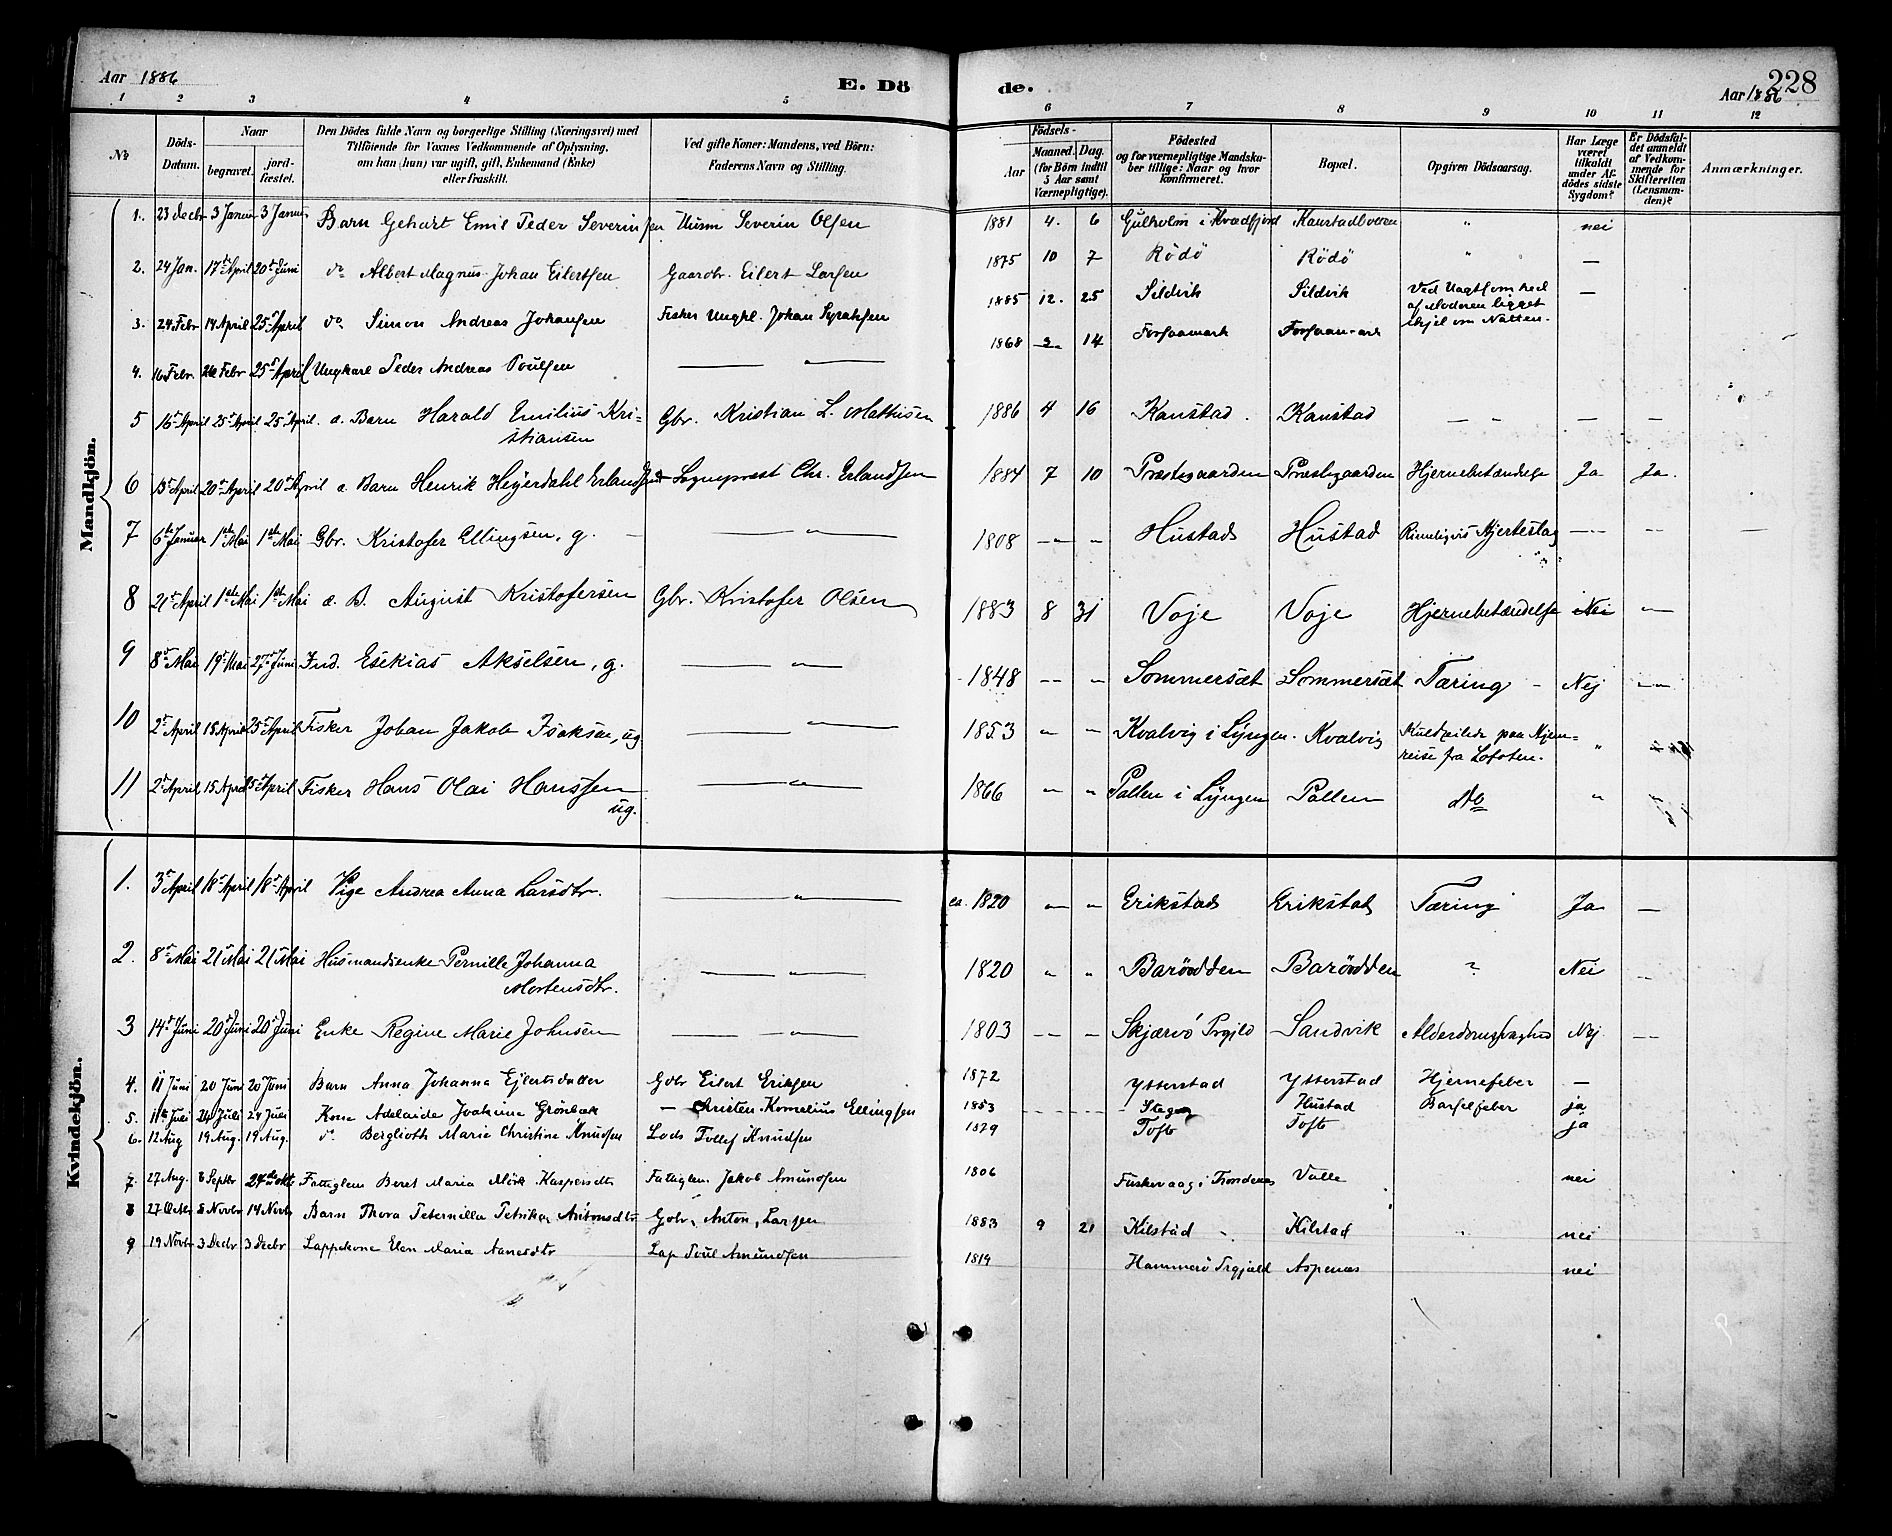 Aar 1886
E. Dö
de.
228
Aar 1886
1 2 3 4 5 6 7 8 9 10 11 12
No
Döds-Datum.
Naar
begravet.
jord-fæstet.
Den Dödes fulde Navn og borgerlige Stilling (Næringsvei) med
Tilföiende for Voxnes Vedkommende af Oplysning,
om han (hun) var ugift, gift, Enkemand (Enke)
eller fraskilt.
Ved gifte Koner: Mandens, ved Börn:
Faderens Navn og Stilling.
Födsels-
Aar
Maaned. Dag.
(for Börn indtil
5 Aar samt
Værnepligtige).
Födested
og for værnepligtige Mandska-
ber tillige: Naar og hvor
konfirmeret.
Bopæl.
Opgiven Dödsaarsag.
Har Læge
været
tilkaldt
under Af-
dödes sidste
Sygdom?
Er Dödsfal-
det anmeldt
af Vedkom-
mende for
Skifteretten
(Lensman-
den)?
Anmærkninger.
Mandkjön.
1. 23 Decbr 3 Januar 3 Januar Barn Gehart Emil Peder Severinsen Husm Severin Olsen 1881 4. 6 Gulholm i Kvædfjord Kanstadbveren " nei
2. 24 Jan. 17de April 20de Juni do Albert Magnus Johan Eilertsen Gaardbr. Eilert Larsen 1875 10 7 Rödö Rödö " —
3. 24 Febr 14 April 25de April do Simon Andreas Johansen Fisker Ungkl. Johan 1885 12. 25 Sildvik Sildvik Ved Uagtsomhed
af Moderen ligget
ihjel om Natten. —
4. 16 Febr. 26 Febr 25de April Ungkarl Peder Andreas Poulsen — " — 1868 14
5 16de April 25de April 25de April. d. Barn Harald Emilius Kri-
stiansen Gbr. Kristian L. Mathisen 1886 4 16 Kanstad. Kanstad — " — —
6 13de April 20de April 20de April d Barn Henrik Heyerdahl Erlandsen Sogneprest Chr. Erlandsen 1884 7 10 Præstegaarden Præstegaarden Hjernebetændelse Ja Ja.
7 6te Januar 1ste Mai 1ste Mai Gbr. Kristofer Ellingsen, g. — " — 1808 — " — Hustad Hustad Rimeligvis Hjerteslag — — —
8 21de April 1ste Mai 1ste Mai d. B. August Kristofersen Gbr. Kristofer Olsen 1883 8 31 Voje Voje Hjernebetændelse Nei —
9 8de Mai 19de Mai 27de Juni Ind. Esekias Akselsen, g. — " — 1848 — " Sommersæt Sommersæt Tæring Nej —
10 2de April 15 April 25de April Fisker Johan Jakob Isaksen, ug — " — 1853 " " Kvalvig i Lyngen. Kvalvig Kuldseilede paa Hjem-
reise fra Lofoten. "
11 2de April 15 April 25de April Fisker Hans Olai Hanssen
ug. — " — 1866 " " Pollen i Lyngen Pollen do "
Kvindekjön.
1. 3de April 18de April 18de April Pige Andrea Anna Larsdtr. — " — ca. 1820 — " Erikstad Erikstad Tæring Ja —
2. 8de Mai 21de Mai 21 Mai Husmandsenke Pernille Johanna
Mortensdtr. — " — 1820 " " Barödden Barödden ? Nei —
3 14de Juni 20de Juni 20de Juni Enke Regine Marie Johnsen — " — 1803 — " Skjærvö Prgjld Sandvik Alderdomssvaghed Nej. —
4. 11 Juni 20 Juni 20 Juni Barn Anna Johanna Ejlertsdatter Gdbr Eilert Eriksen 1872 Ytterstad Ytterstad Hjernefeber —
5. 11te Juli 24 Juli 24 Juli Kone Adelaide Joakime Grönbæk — Kristen Kornelius Ellingsen 1853 — Hustad Barselfeber ja
6. 12 Aug 19 Aug. 19 Aug. do Berglioth Marie Christine Knudsen Lods Tollef Knudsen 1879 Tofte Tofte ja
7. 27 Aug. 3 Septbr 24de okt Fattiglem Beret Maria Mörk Kaspersdtr Fattiglem. Jakob Amundsen 1806 i Trondenes Valle nei
8 27 Octbr 8 Novbr 14 Novbr Barn Thora Peternilla Petrikke Antonsdtr Gdbr. Anton Larsen 1883 9 21 Kilstad Kilstad " nei
9 19 Novbr 3 Decbr 3 Decbr Lappekone Elen Maria Aanesdtr Lap Poul Amundsen 1819 Hammerö Prgjæld Aspenæs nei